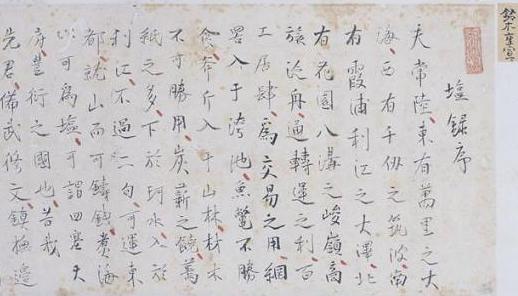 鈴木重
塩録序
夫常陸東有萬里之大
海西有千仭之筑波南
有霞浦利江之大澤北
有花園八溝之峻嶺高
旗汎舟通轉運之利百
工居肆爲交易之用網
罟入于洿池魚鼈不勝
食斧斤入于山林材木
不可勝用炭薪之饒萬
紙之多下於珂水入於
利江不過二旬可運東
都就山而可鑄錢煮海
以可爲塩可謂四塞天
府豊衍之國也昔哉
先君備武修文鎮撫邉